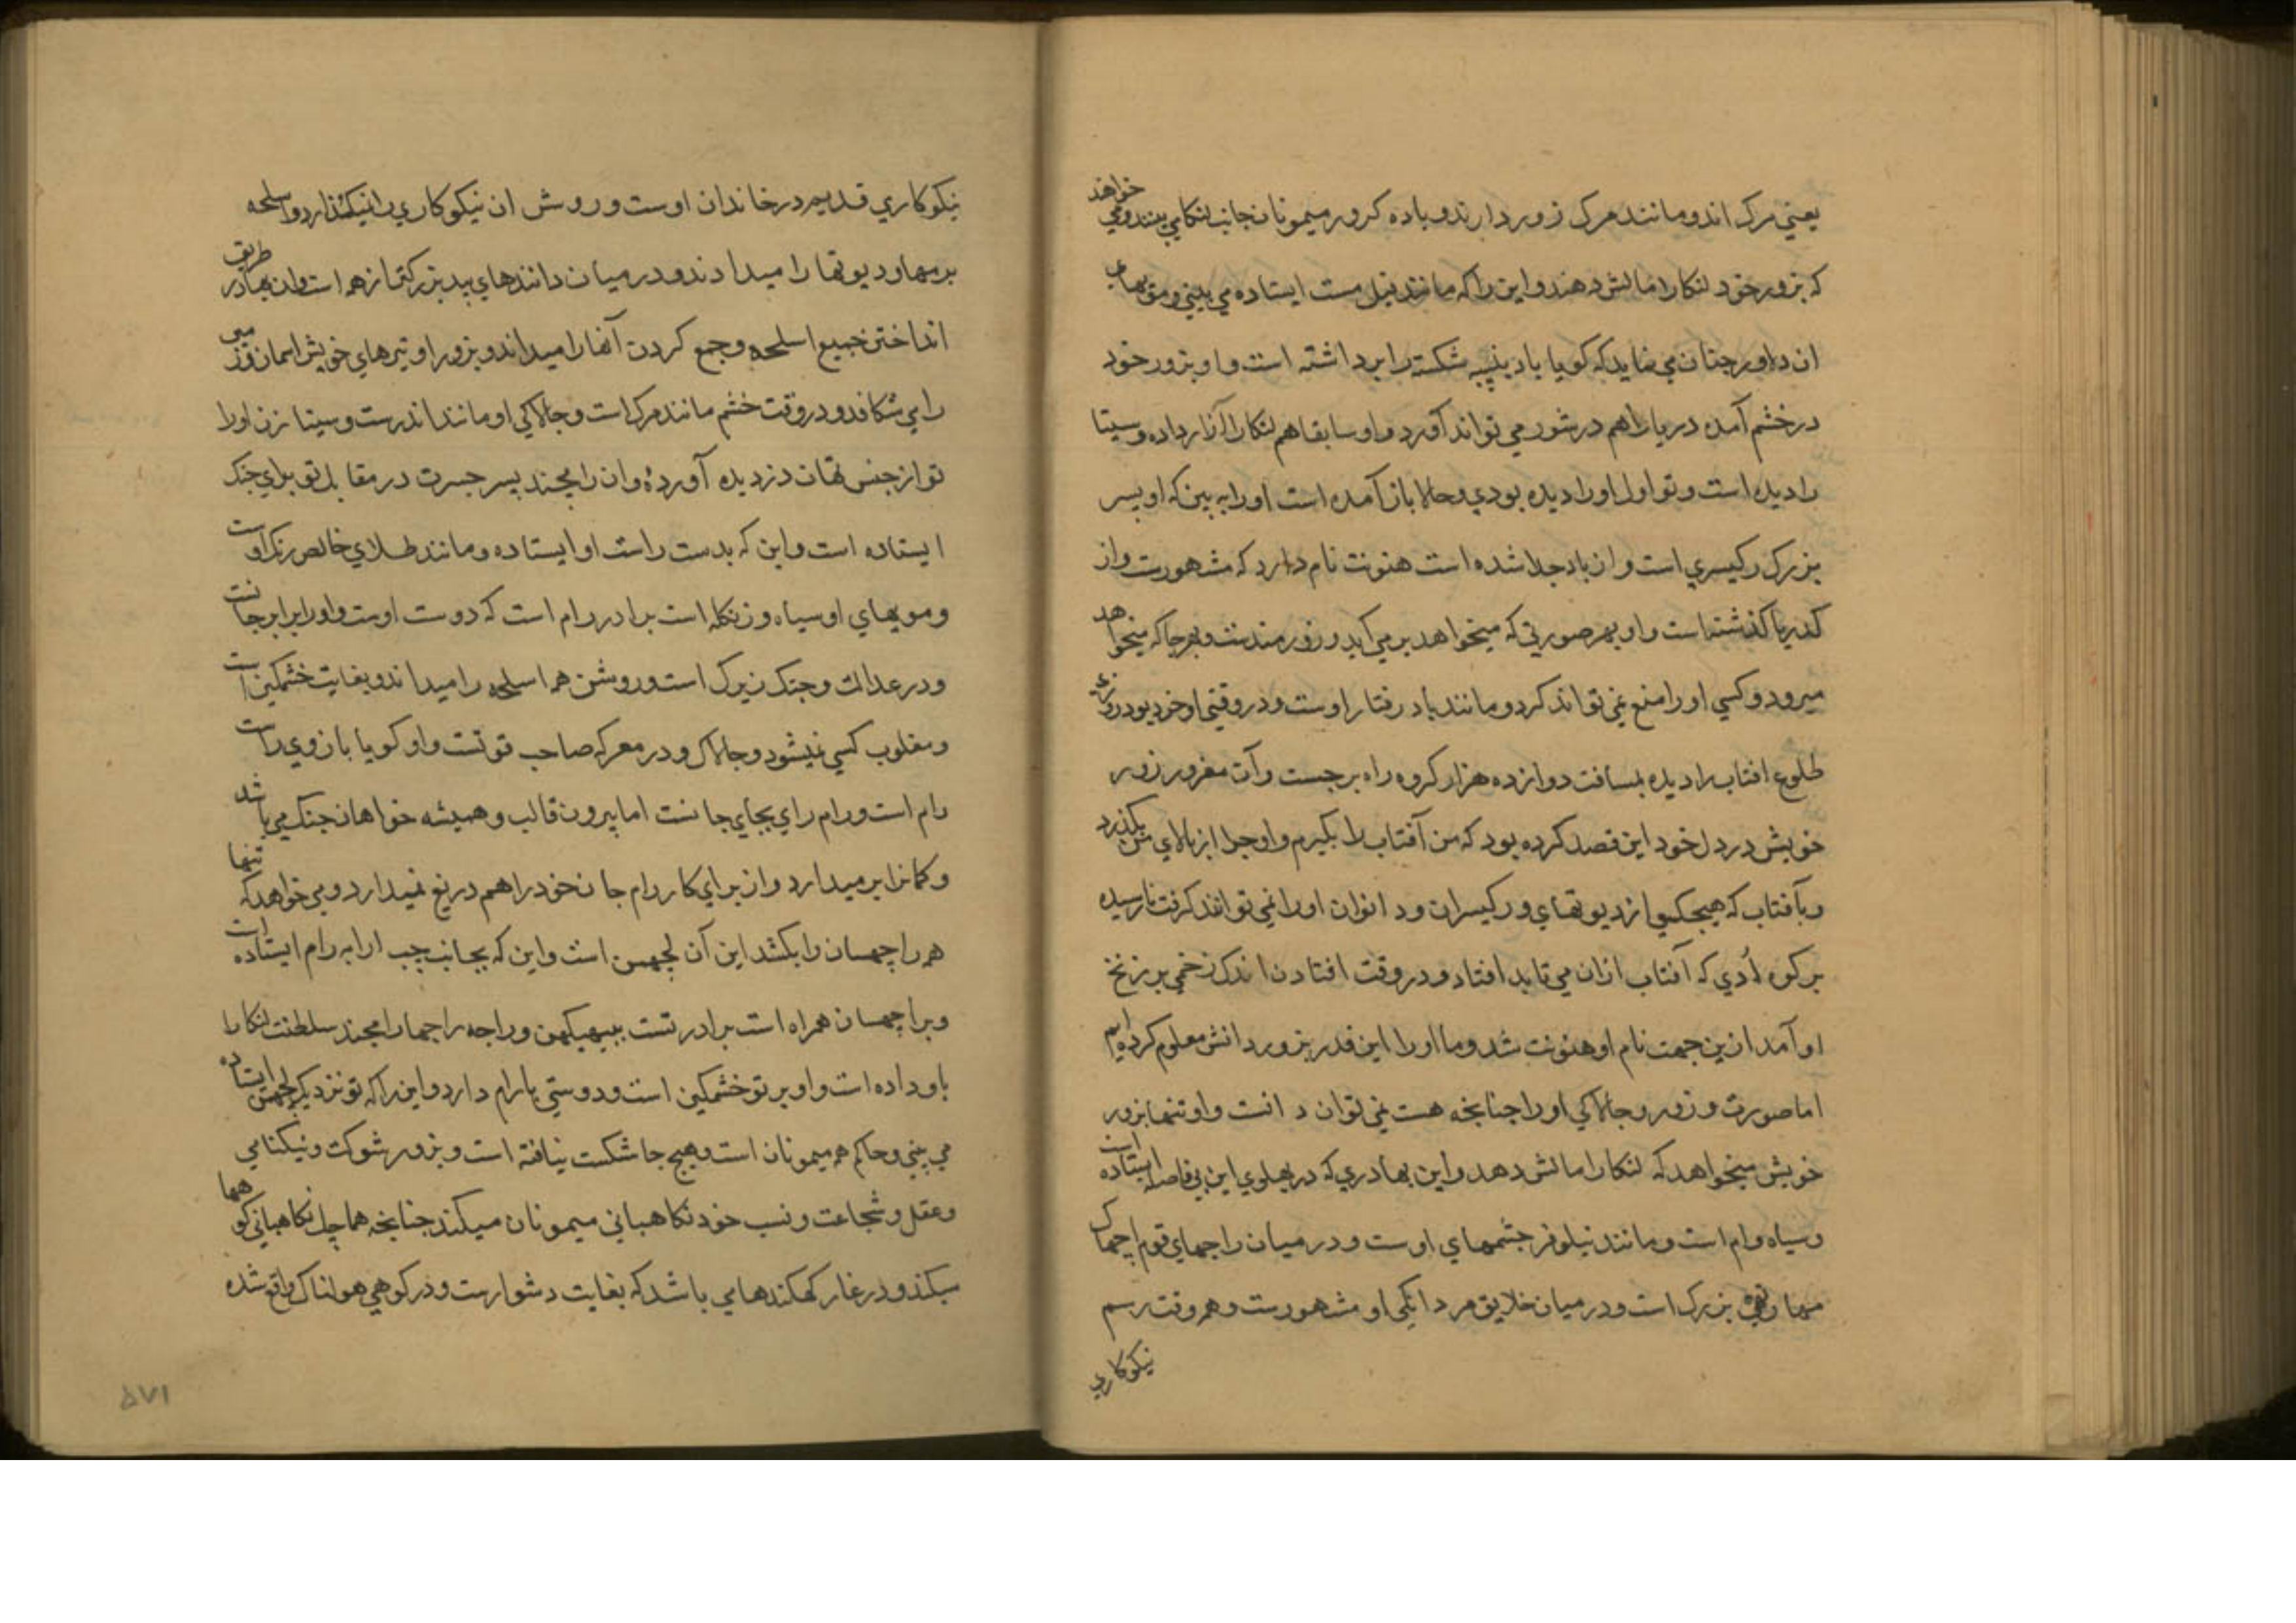 يعني مرك اندو مانند مرك زور دارند و باده كرور ميمونان جانب لنكا مي بينند و مي خواهند
كه بزور خود لنكا را مالش دهند و اين را كه مانند فيل مست ايستاده مي بيني و مويهاي
ان داور چنان مي نمايد كه كويا باد پنبه شكسته را برداشته است و او بزور خود
در خشم آمده دريا را هم در شور مي تواند آورد و او سابقا هم لنكا را آزار داده و سيتا
را ديده است و تو اول او را ديده بودي و حالا باز آمده است او را به بين كه او پسر
بزرك ركيسري است و از باد جدا شده است هنونت نام دارد كه مشهورست و از
كه دريا كذشته است و او بهر صورتي كه ميخواهد بر مي آيد و زورمندست و بهر جا كه ميخواهد
ميرود و كسي او را منع نمي تواند كرد و مانند باد رفتار اوست و در وقتي او خود بود روزي
طلوع افتاب را ديده بمسافت دوازده هزار كروه راه برجست و آن مغرور زور
خويش در دل خود اين قصد كرده بود كه من آفتاب را بكيرم و او چرا از بالاي من بكذرد
و بآفتاب كه هيچكس از ديوتهاي و ركيسران و دانوان او را نمي توانند كرفت نارسيده
بر كوه اُدي كه آفتاب ازان مي تابد افتاد و در وقت افتادن اندك زخمي بر زنخ
او آمد ازين جهت نام او هنونت شد و ما او را اين قدر بزور دانش معلوم كرده ايم
اما صورت و زور و چالاكي او را چنانچه هست نمي توان دانست و او تنها بزور
خويش ميخواهد كه لنكا را مالش دهد و اين بهادري كه در پهلوي اين بي فاصله ايستاده است
و سياه وام است و مانند نيلوفر چشمهاي اوست و در ميان راجهاي قوم اچهاك
مهارتهي بزرك است و در ميان خلايق مردانكي او مشهورست و هر وقت رسم
نيكوكاري
نيكوكاري قديم در خاندان اوست و روش ان نيكوكاري را نيكذارد و اسلحه
برمها و ديوتها را ميداند و در ميان دانندهاي بيد بزركتر از همه است و ان بهادر طريق
انداختن جميع اسلحه و جمع كردن آنها را ميداند و بزور او تيرهاي خويش اسمان و زمين
را مي شكافد و در وقت خشم مانند مرك است و چالاكي او مانند اندرست و سيتا زن او را
تو از جنس تهان دزديده آورده و ان رامچند پسر جسرت در مقابل تو براي جنك
ايستاده است و اين كه بدست راست او ايستاده و مانند طلاي خالص رنك اوست
و مويهاي او سياه و زنكله است برادر رام است كه دوست اوست و او را برابر جانست
و در عدالت و جنك زيرك است و روشن همه اسلحه را ميداند و بغايت خشمكين است
و مغلوب كسي نميشود و چالاك و در معركه صاحب قوتست و او كويا بازوي راست
رام است و رام راي بجاي جانست اما بيرون قالب و هميشه خواهان جنك مي باشد
و كمانرا بر ميدارد و از براي كار رام جان خود را هم دريغ نميدارد و مي خواهد كه تنها
همه راچهسان را بكشد اين آن لچهمن است و اين كه بجانب چپ ارابه رام ايستاده است
و براچهسان همراه است برادر تست ببهيكهن و راجه راجها رامچند سلطنت لنكا را
باو داده است و او بر تو خشمكين است و دوستي با رام دارد و اين را كه تو نزديك لچهمن ايستاده
مي بيني و حاكم همه ميمونان است و هيچ جا شكست نيافته است و بزور شوكت و نيكنامي
و عقل و شجاعت و نسب خود نكاهباني ميمونان ميكند چنانچه هماچل نكاهباني كوهها
ميكند و در غار كهكندها مي باشد كه بغايت دشوارست و در كوهي هولناك واقع شده
٥٧١